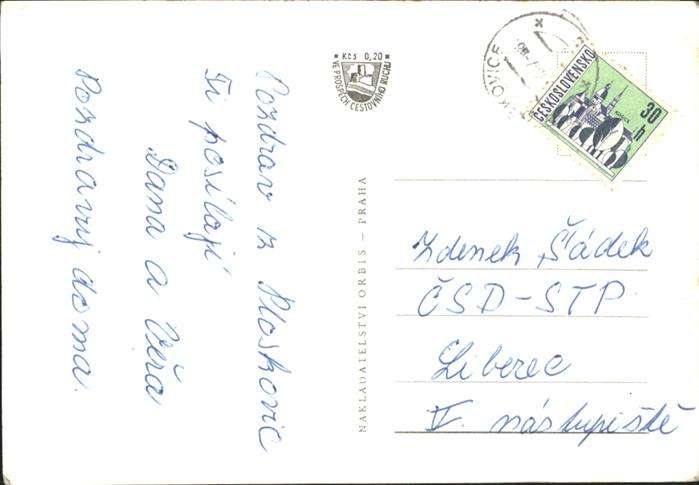 Pozdrav z Ploskovic
Ti posílají
Dana a Věra
Pozdravuj doma.
KČS 0,20
VE PROSPĚCH CESTOVNÍHO RUCHU
NAKLADATELSTVÍ ORBIS – PRAHA
KOVICE
ČESKOSLOVENSKO
30 h
Zdenek Šádek
ČSD-STP
Liberec
V. nástupiště